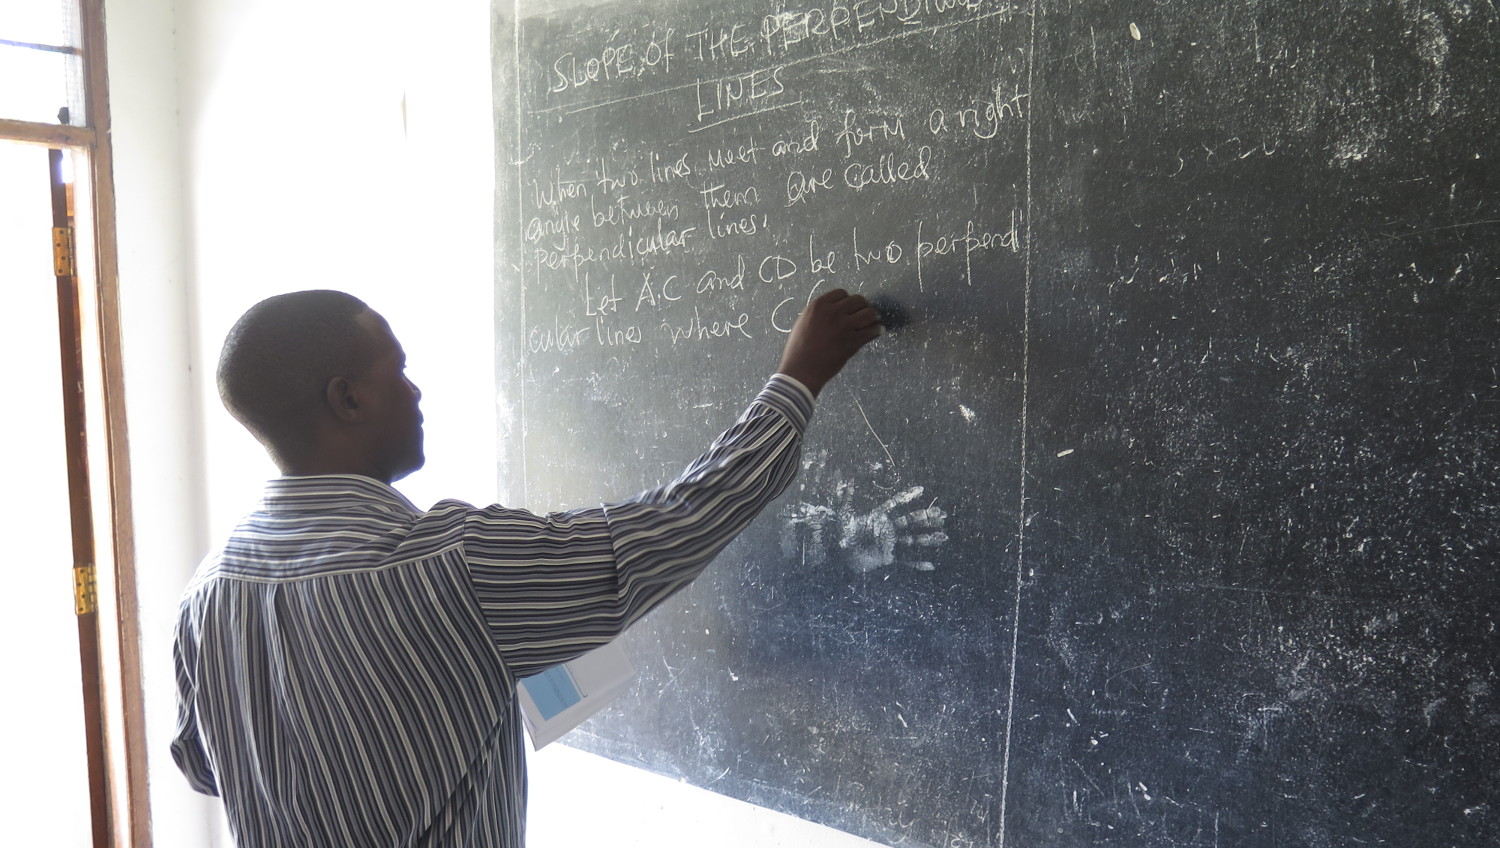 SLOPE OF THE PERPENDICU
LINES
When two lines meet and form a right
angle between them are called
perpendicular lines.
Let AC and CD be two perpendi
cular lines where C